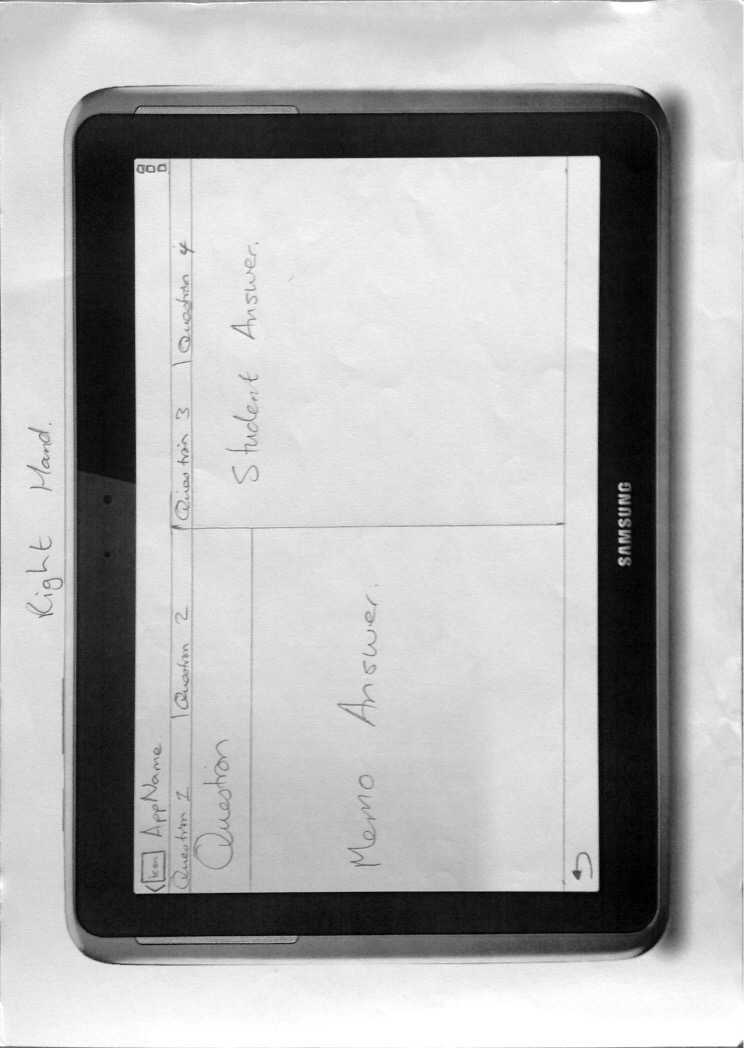 Right Hand.
icon AppName
Question 1 Question 2 Question 3 Question 4
Question
Student Answer.
Memo Answer.
SAMSUNG